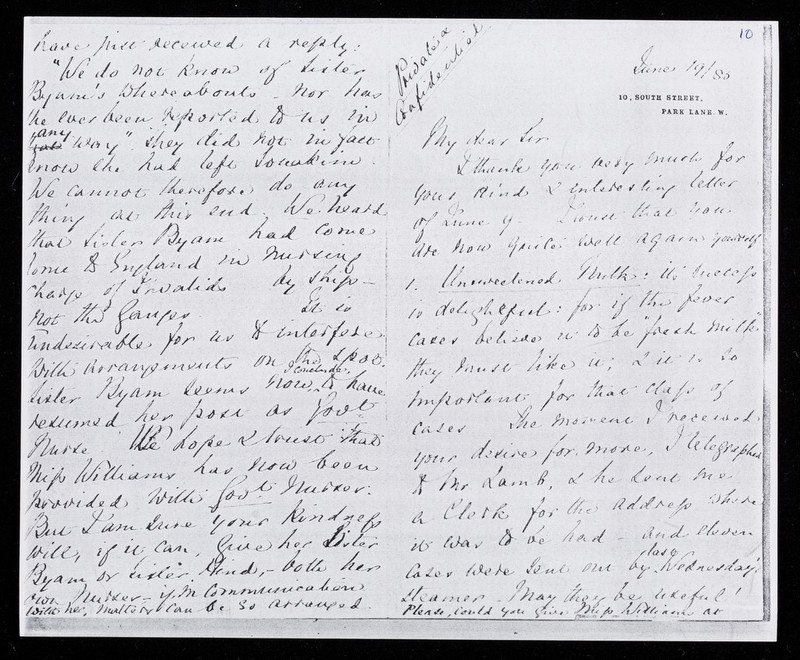 have just received a reply:
"We do not know of Sister
Byam's whereabouts – nor has
she ever been reported to us in
any
way". They did not in fact
know she had left Souakim.
We cannot therefore do any
thing at this end. We heard
that Sister Byam had come
home to England in nursing
charge of Invalids by ship –
not the Ganges. It is
undesirable for us to interfere
with arrangements on the spot.
I conclude,
Sister Byam seems now to have
resumed her post as Govt.
Nurse. We hope & trust that
Miss Williams has now been
provided with Govt. Nurses.
But I am sure your kindness
will, if it can, give her Sister
Byam or Sister Hind, – both her
own Nurses – if in communication
with her, matters can be so arranged
10
Private &
Confidential
June 19/85
10, SOUTH STREET,
PARK LANE. W.
My dear Sir
I thank you very much for
your kind & interesting letter
of June 9. I trust that you
are now quite well again yourself
1. Unsweetened Milk: its success
is delightful: for if the fever
cases believe it to be "fresh milk"
they must like it; & it is so
important for that class of
cases. The moment I received
your desire for more, I telegraphed
to Mr Lamb, & he sent me
a Clerk for the address where
it was to be had – and eleven
cases were sent out by last Wednesday's
steamer. May they be useful!
Please, could you give Miss Williams at